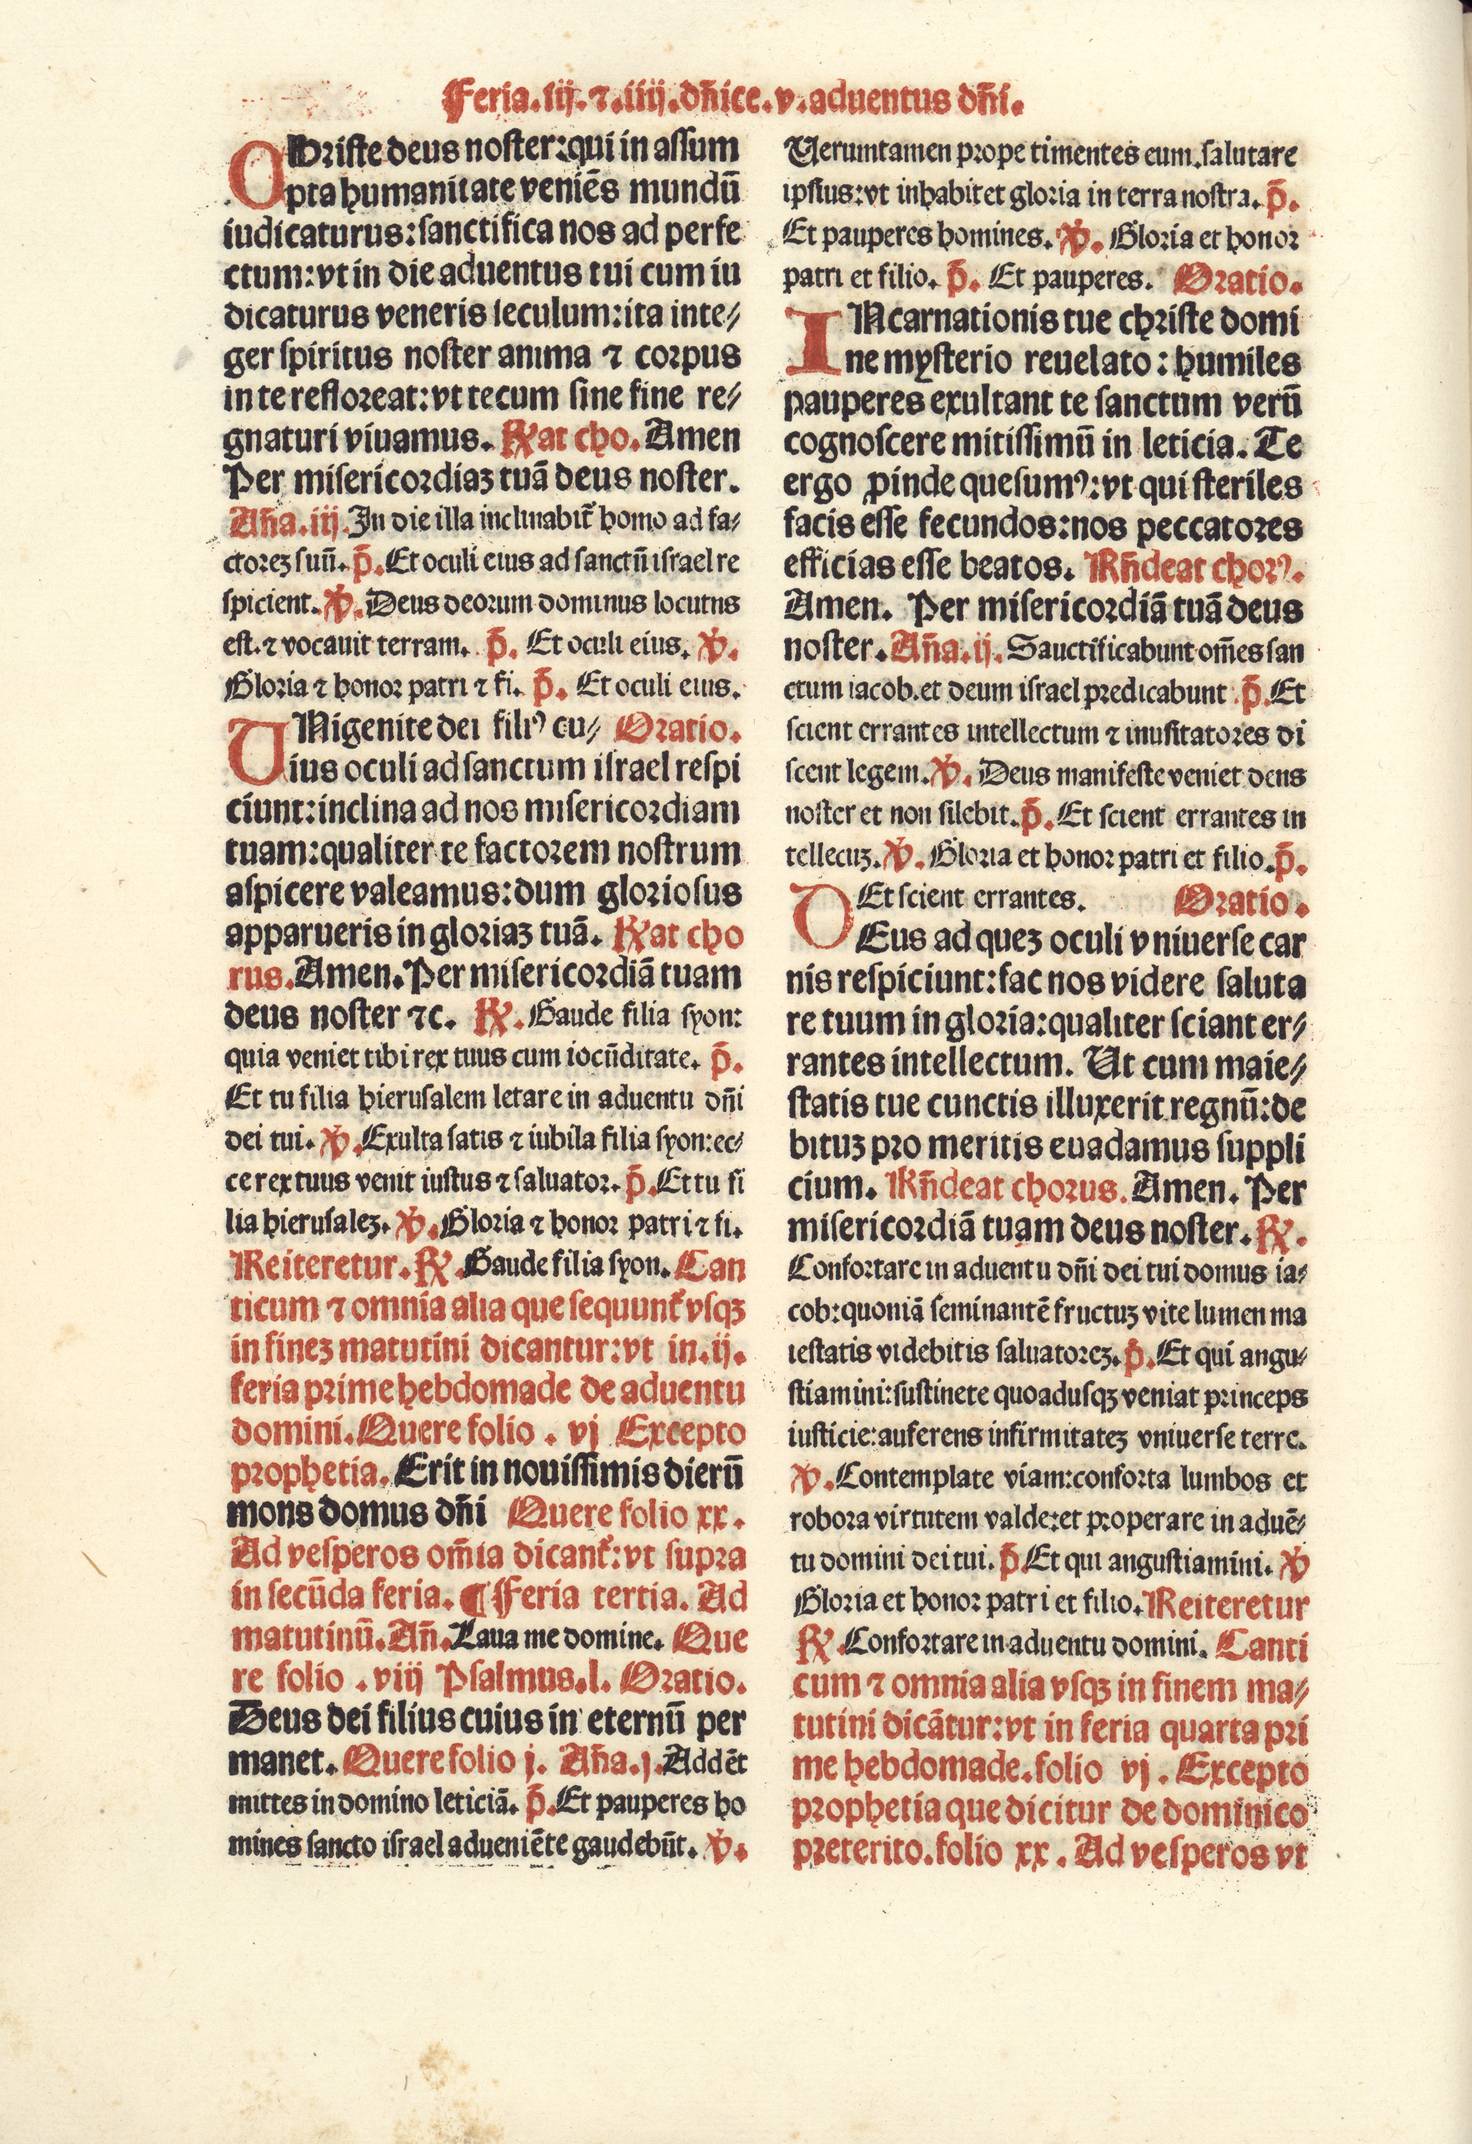 Feria.iij.⁊.iiij.dñice.v.aduentus dñi.
OHriste deus noster:qui in assum
pta humanitate veniēs mundū
iudicaturus:sanctifica nos ad perfe
ctum:vt in die aduentus tui cum iu
dicaturus veneris seculum:ita inte⸗
ger spiritus noster anima ⁊ corpus
in te refloreat:vt tecum sine fine re⸗
gnaturi viuamus. R̃at cho. Amen
Per misericordiaꝫ tuā deus noster.
Aña.iij. In die illa inclinabit᷑ homo ad fa⸗
ctoreꝫ suū. p̄. Et oculi eius ad sanctū israel re
spicient. ℣. Deus deorum dominus locutns
est.⁊ vocauit terram. p̄. Et oculi eius. ℣.
Gloria ⁊ honor patri ⁊ fi. p̄. Et oculi eius.
VNigenite dei filiꝰ cu⸗ Oratio.
ius oculi ad sanctum israel respi
ciunt:inclina ad nos misericordiam
tuam:qualiter te factorem nostrum
aspicere valeamus:dum gloriosus
apparueris in gloriaꝫ tuā. R̃at cho
rus. Amen. Per misericordiā tuam
deus noster ⁊c. ℟. Gaude filia syon:
quia veniet tibi rex tuus cum iocūditate. p̄.
Et tu filia hierusalem letare in aduentu dñi
dei tui. ℣. Exulta satis ⁊ iubila filia syon:ec⸗
ce rex tuus venit iustus ⁊ saluator. p̄. Et tu fi
lia hierusaleꝫ. ℣. Gloria ⁊ honor patri ⁊ fi.
Reiteretur. ℟. Gaude filia syon. Can
ticum ⁊ omnia alia que sequunt᷑ vsqꝫ
in fineꝫ matutini dicantur:vt in.ij.
feria prime hebdomade de aduentu
domini. Quere folio . vj Excepto
prophetia. Erit in nouissimis dierū
mons domus dñi Quere folio xx.
Ad vesperos om̄ia dicant᷑:vt supra
in secūda feria. ¶ Feria tertia. Ad
matutinū. Añ. Laua me domine. Que
re folio .viij Psalmus.l. Oratio.
Deus dei filius cuius in eternū per
manet. Quere folio j. Aña.j. Addēt
mittes in domino leticiā. p̄. Et pauperes ho
mines sancto israel adueniēte gaudebūt. ℣.
Veruntamen prope timentes eum.salutare
ipsius:vt inhabitet gloria in terra nostra. p̄.
Et pauperes homines. ℣. Gloria et honor
patri et filio. p̄. Et pauperes. Oratio.
INcarnationis tue christe domi
ne mysterio reuelato : humiles
pauperes exultant te sanctum verū
cognoscere mitissimū in leticia. Te
ergo ꝓinde quesumꝰ:vt qui steriles
facis esse fecundos:nos peccatores
efficias esse beatos. Rñdeat chorꝰ.
Amen. Per misericordiā tuā deus
noster. Aña.ij. Sauctificabunt om̄es san
ctum iacob.et deum israel predicabunt p̄. Et
scient errantes intellectum ⁊ inusitatores di
scent legem. ℣. Deus manifeste veniet dens
noster et non silebit. p̄. Et scient errantes in
tellectuꝫ. ℣. Gloria et honor patri et filio. p̄.
Et scient errantes. Oratio.
DEus ad queꝫ oculi vniuerse car
nis respiciunt:fac nos videre saluta
re tuum in gloria:qualiter sciant er⸗
rantes intellectum. Ut cum maie⸗
statis tue cunctis illuxerit regnū:de
bituꝫ pro meritis euadamus suppli
cium. Rñdeat chorus. Amen. Per
misericordiā tuam deus noster. ℟.
Confortare in aduentu dñi dei tui domus ia⸗
cob:quoniā seminantē fructuꝫ vite lumen ma
iestatis videbitis saluatoreꝫ. p̄. Et qui angu⸗
stiamini:sustinete quoadusqꝫ veniat princeps
iusticie:auferens infirmitateꝫ vniuerse terre.
℣. Contemplate viam:conforta lumbos et
robora virtutem valde:et properare in aduē⸗
tu domini dei tui. p̄ Et qui angustiamini. ℣
Gloria et honor patri et filio. Reiteretur
℟. Confortare in aduentu domini. Canti
cum ⁊ omnia alia vsqꝫ in finem ma⸗
tutini dicātur:vt in feria quarta pri
me hebdomade.folio vj . Excepto
prophetia que dicitur de dominico
preterito.folio xx . Ad vesperos vt